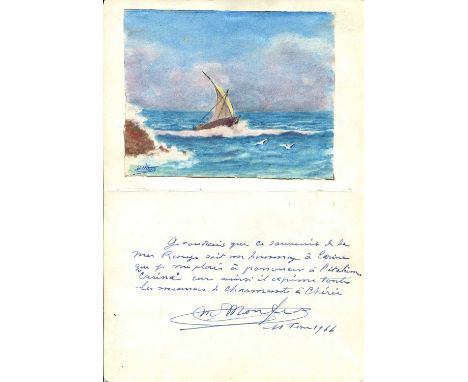 Je voudrais que ce souvenir de la
mer Rouge soit un hommage à Carine
que je me plais à prononcer à l'italien
"Carina" car ainsi il exprime toutes
les nuances de Charmante à Chérie
10 1966